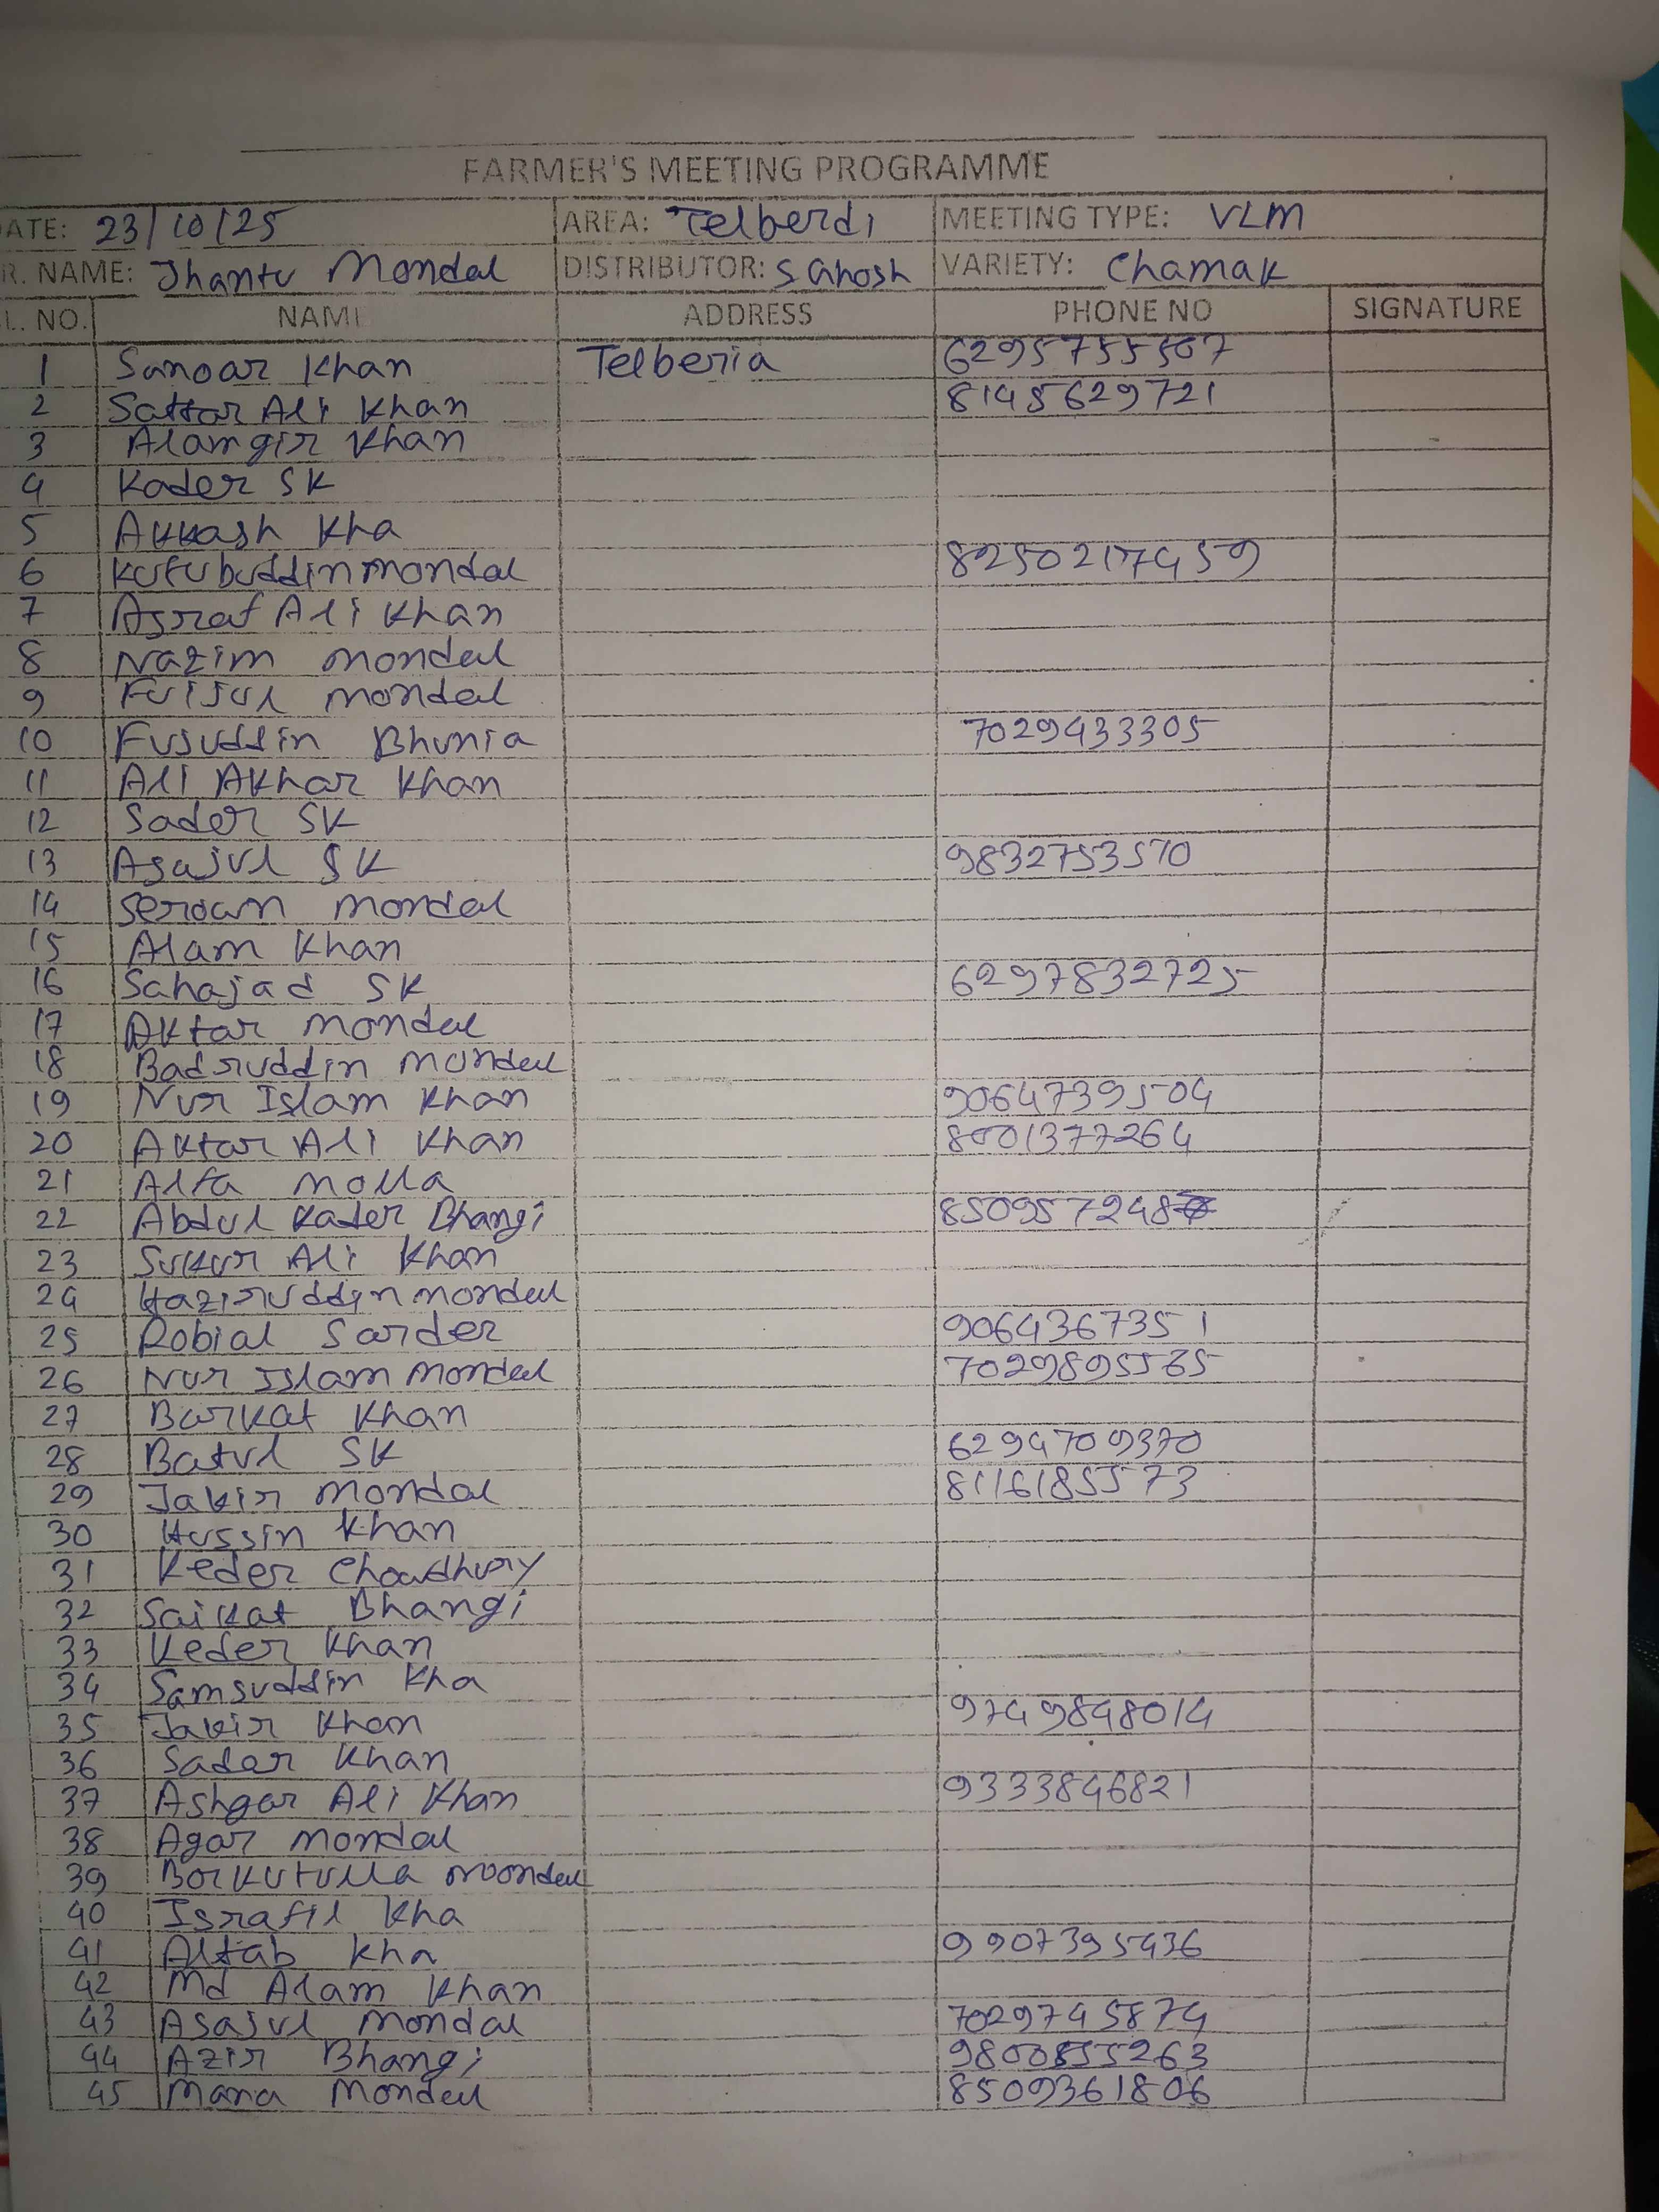 FARMER'S MEETING PROGRAMME
DATE: 23/10/25 AREA: Telberdi MEETING TYPE: VLM
R. NAME: Jhantu Mondal DISTRIBUTOR: S Ghosh VARIETY: Chamak
L. NO. NAME ADDRESS PHONE NO SIGNATURE
1 Sanoar Khan Telberia 6295755507
2 Sattar Ali Khan 8145629721
3 Alamgir Khan
4 Kader SK
5 Akkash Kha
6 Kutubuddin Mondal 8250217459
7 Asraf Ali Khan
8 Nazim Mondal
9 Fuijul Mondal
10 Fusuddin Bhunia 7029433305
11 Ali Akhar Khan
12 Sader SK
13 Asajul SK 9832753570
14 Seroam Mondal
15 Alam Khan
16 Sahajad SK 6297832725
17 Aktar Mondal
18 Badruddin Mondal
19 Nur Islam Khan 9064739504
20 Aktar Ali Khan 8001377264
21 Alfa Molla
22 Abdul Kader Bhangi
23 Sukur Ali Khan
24 Haziruddin Mondal
25 Robial Sarder 9064367351
26 Nur Islam Mondal 7029895565
27 Barkat Khan
28 Batul SK 6294709370
29 Jakir Mondal 8116185573
30 Hussin Khan
31 Keder Chowdhury
32 Saikat Bhangi
33 Keder Khan
34 Samsuddin Kha
35 Jakir Khan 9749848014
36 Sadar Khan
37 Ashgar Ali Khan 9333846821
38 Agar Mondal
39 Borkutulla Moondal
40 Israfil Kha
41 Altab Kha 9907395436
42 Md Alam Khan
43 Asajul Mondal 7029745874
44 Azir Bhangi 9800855263
45 Mana Mondal 8509361806